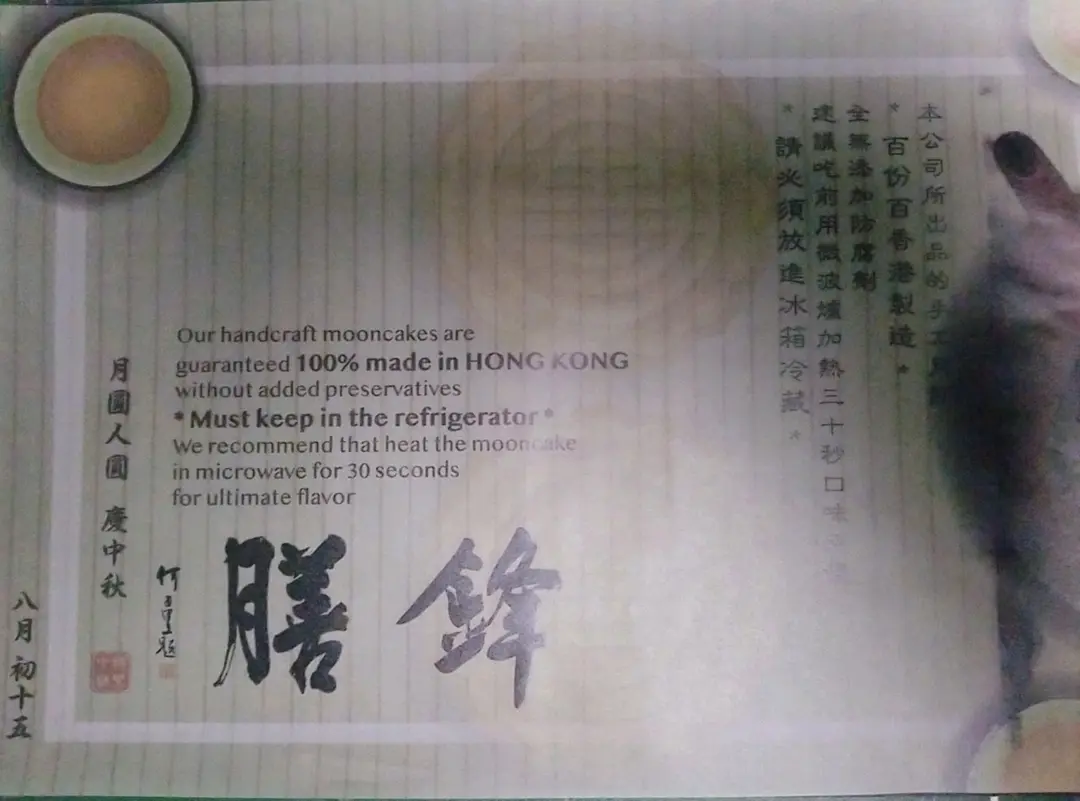 本公司所出品的手工
*百份百香港製造*
全無添加防腐劑
建議吃前用微波爐加熱三十秒口味
*請必須放進冰箱冷藏*
Our handcraft mooncakes are
guaranteed 100% made in HONG KONG
without added preservatives
*Must keep in the refrigerator*
We recommend that heat the mooncake
in microwave for 30 seconds
for ultimate flavor
鋒膳
月圓人圓 慶中秋
八月初十五